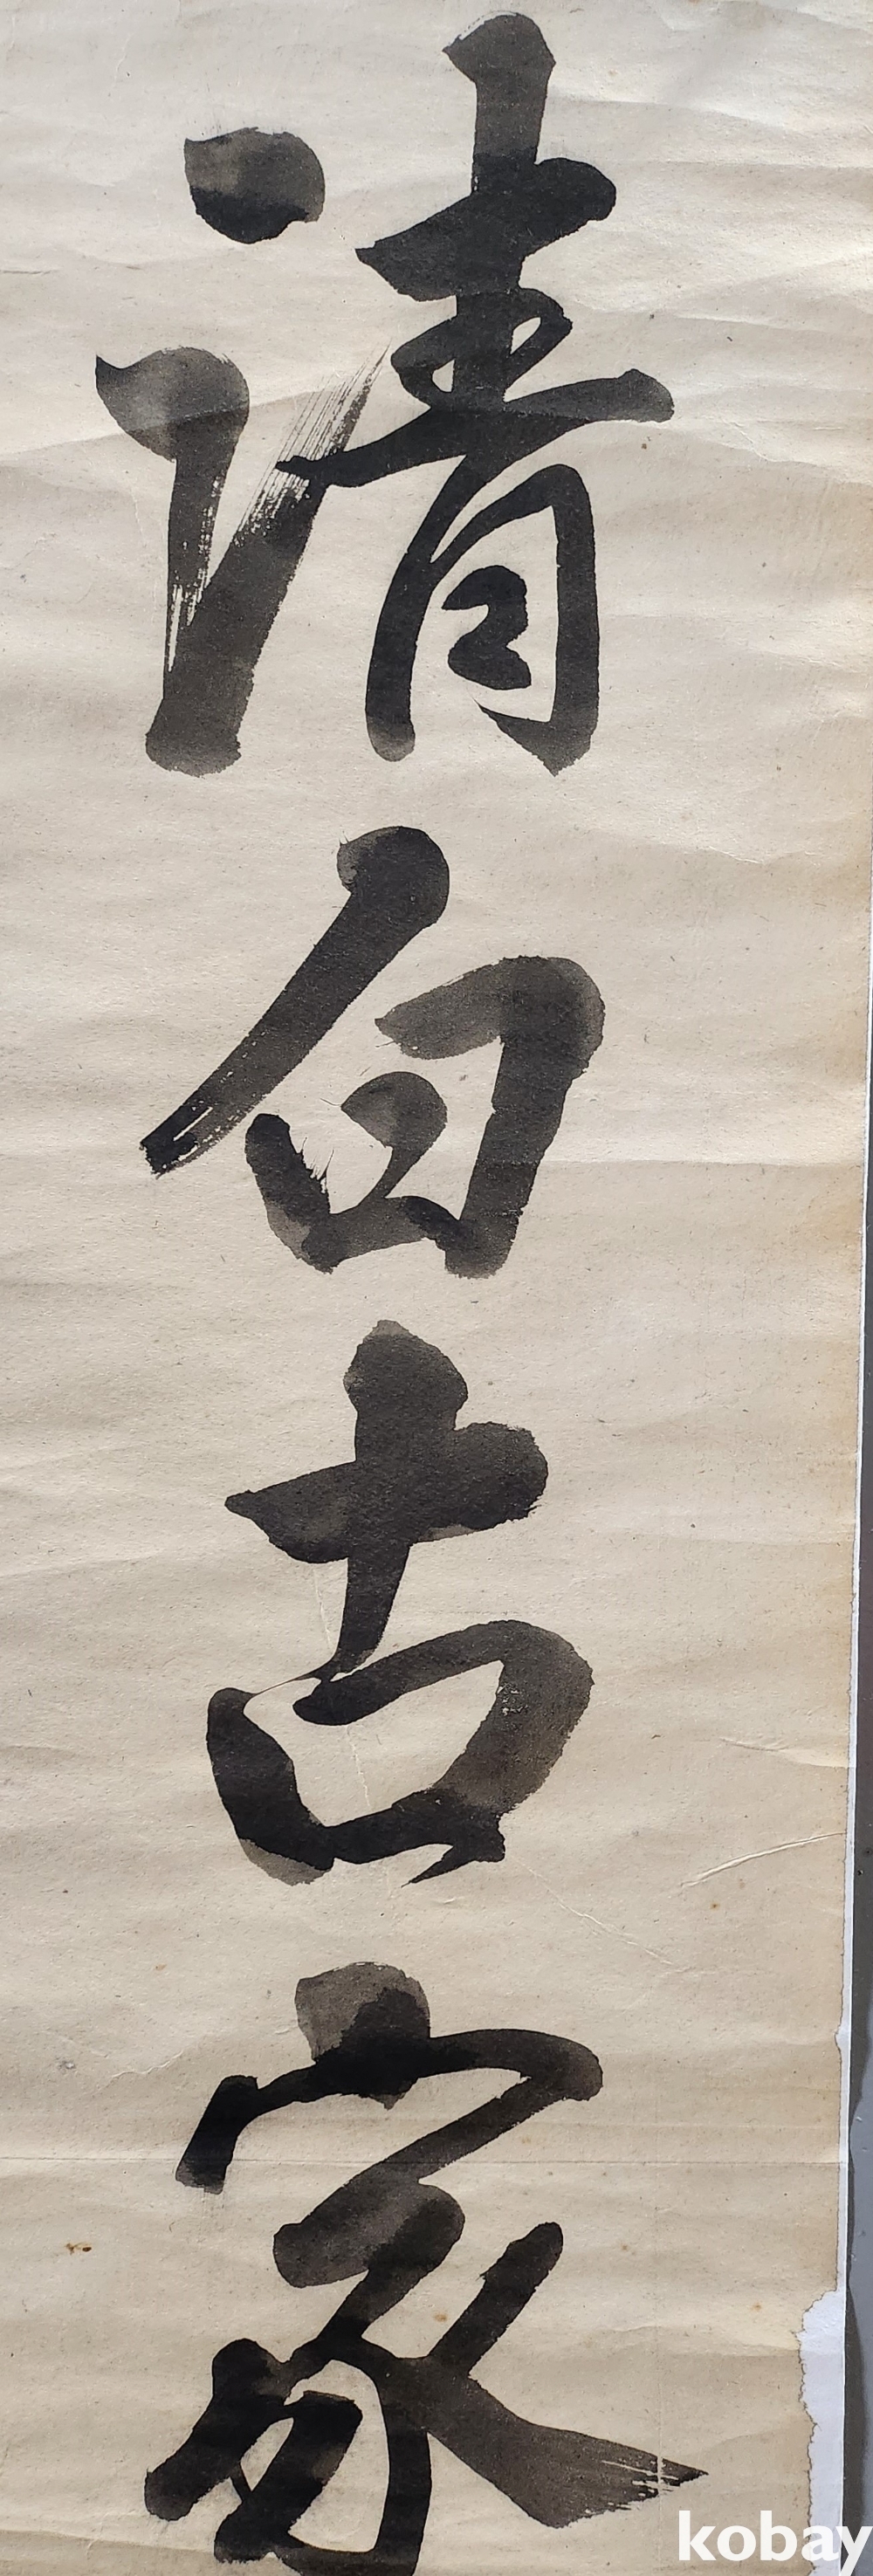 清白古家
kobay